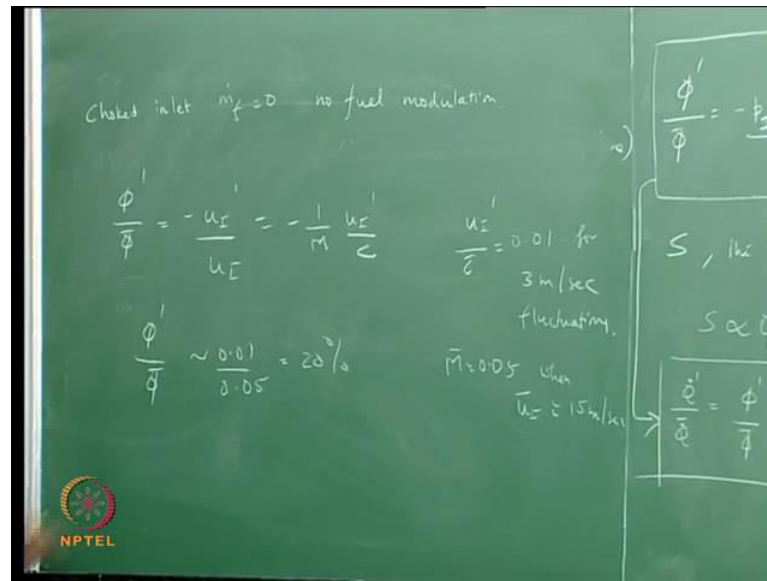 Choked inlet ṁ_f' = 0 no fuel modulation.
φ'/φ̄ = -u_I'/u_I = -1/M u_I'/c
u_I'/c̄ = 0.01 for
3 m/sec
fluctuating.
φ'/φ̄ ~ 0.01/0.05 = 20%
M̄ = 0.05 when
ū_I = 15 m/sec
φ'/φ̄ = -p
S, the
S ∝
Q̇'/Q̇̄ = φ'/φ̄
NPTEL